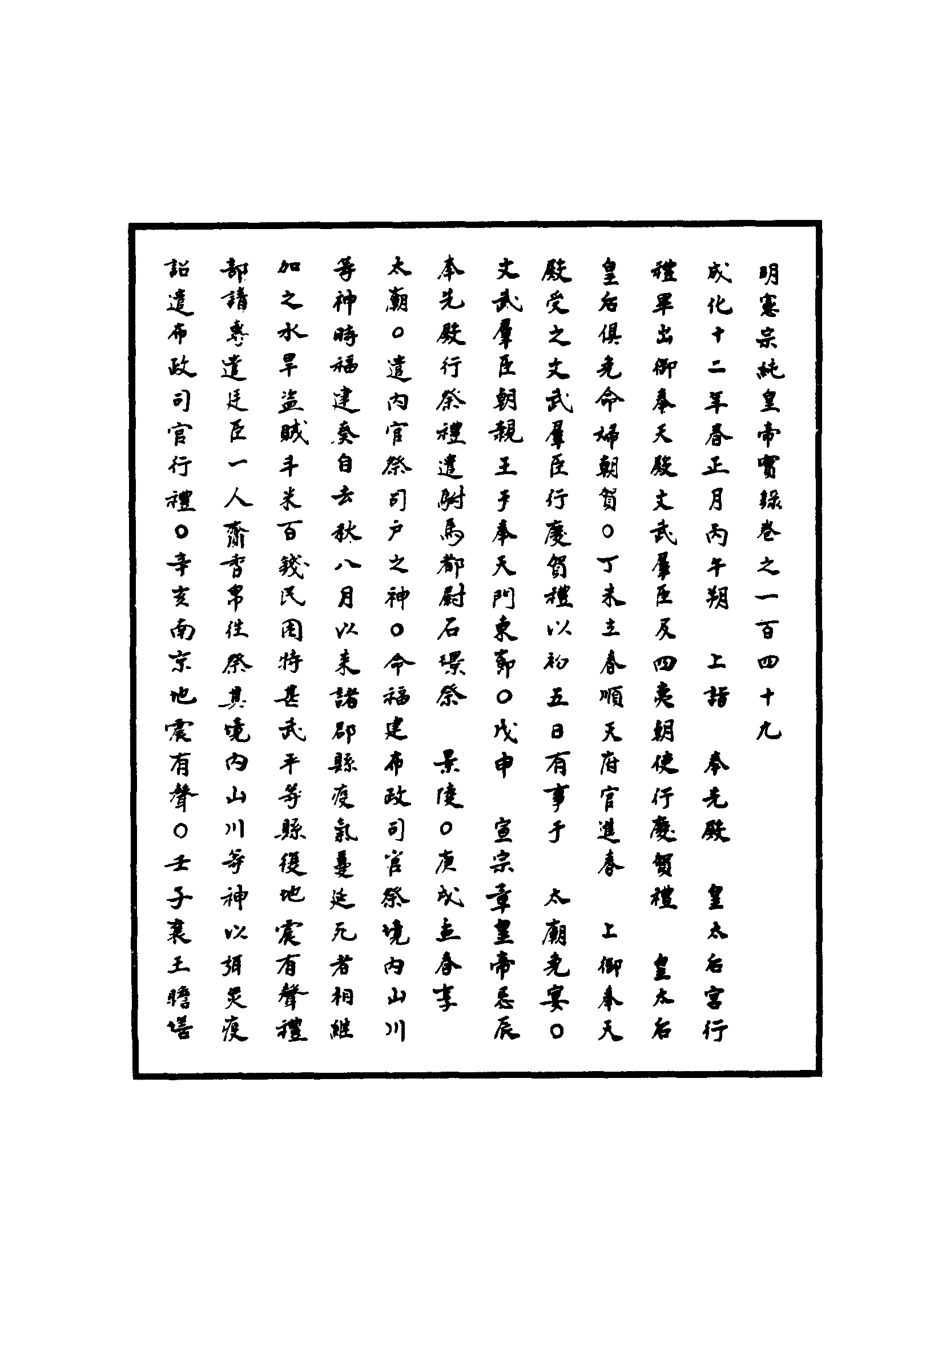 明憲宗純皇帝實錄卷之一百四十九
成化十二年春正月丙午朔　上詣　奉先殿　皇太后宮行
禮畢出御奉天殿文武羣臣及四夷朝使行慶賀禮　皇太后
皇后俱免命婦朝賀○丁未立春順天府官進春　上御奉天
殿受之文武羣臣行慶賀禮以初五日有事于　太廟免宴○
文武羣臣朝親王于奉天門東廊○戊申　宣宗章皇帝忌辰
奉先殿行祭禮遣駙馬都尉石璟祭　景陵○庚戌孟春享
太廟○遣內官祭司戶之神○命福建布政司官祭境內山川
等神時福建奏自去秋八月以來諸郡縣疫氣蔓延死者相繼
加之水旱盜賊斗米百錢民困特甚武平等縣復地震有聲禮
部請專遣廷臣一人齎香帛往祭其境內山川等神以弭災疫
詔遣布政司官行禮○辛亥南京地震有聲○壬子襄王瞻墡